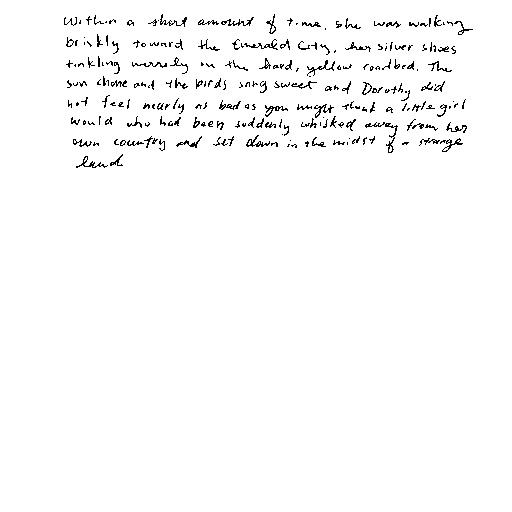 Within a short amount of time, she was walking
briskly toward the Emerald City, her silver shoes
tinkling merrily on the hard, yellow roadbed. The
sun shone and the birds sang sweet and Dorothy did
not feel nearly as bad as you might think a little girl
would who had been suddenly whisked away from her
own country and set down in the midst of a strange
land.